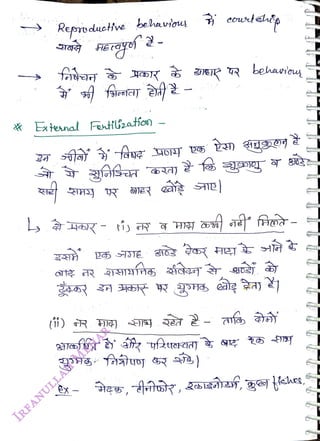 → Reproductive behaviour में courtship
सबसे महत्वपूर्ण है -
→ निषेचन के प्रकार के आधार पर behaviour
में भी भिन्नता होती है -
* External Fertilization -
इन जीवों में विषम प्रणय एक ऐसा अनुकूलन है
जो ये सुनिश्चित करता है कि शुक्राणु व अण्डे
सही समय पर बाहर छोड़े जाए।
↳ दो प्रकार - (i) नर व मादा कभी नहीं मिलते -
इसमें एक जगह अण्डे देकर मादा के जाने के
बाद नर रासायनिक संवेदन से अण्डों को
ढूँढकर इन प्रकार पर युग्मक छोड़ देता है।
(ii) नर मादा साथ रहते है - ताकि दोनों
आकर्षित हो और परिपक्वता के बाद एक साथ
युग्मक निर्माण कर सके।
Ex - मेढ़क, टीनोफोर, इकाइनोडर्म, कुछ fishes,
IRFANULLAH